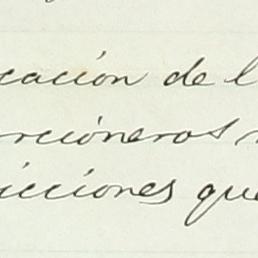 cación de l
rcioneros
icciones que